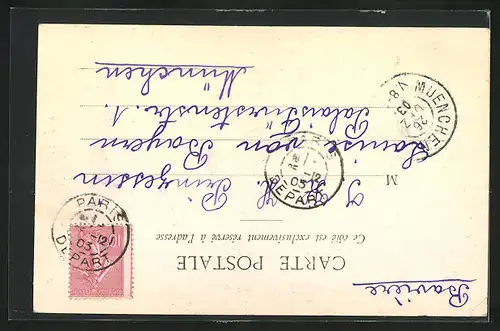 Bavière
CARTE POSTALE
Ce côté est exclusivement réservé à l'adresse
J. K. H.
M Prinzessin
Louise von Bayern
Palais Fürstenstr. 1.
München
PARIS
DEPART
03
PARIS
DEPART
03
MUENCHEN
26
03